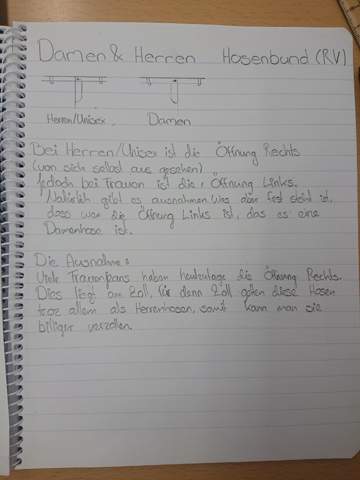 Damen & Herren Hosenbund (RV)
Herren/Unisex Damen
Bei Herren/Unisex ist die Öffnung Rechts
(von sich selbst aus gesehen)
Jedoch bei Frauen ist die Öffnung Links.
Natürlich gibt es ausnahmen was aber fest steht ist,
dass wen die Öffnung Links ist, das es eine
Damenhose ist.
Die Ausnahme:
Viele Frauen haben heutzutage die Öffnung Rechts.
Dies liegt am Zoll, für denn Zoll gelten diese Hosen
troz allem als Herrenhosen, somit kann man sie
billiger verzollen.